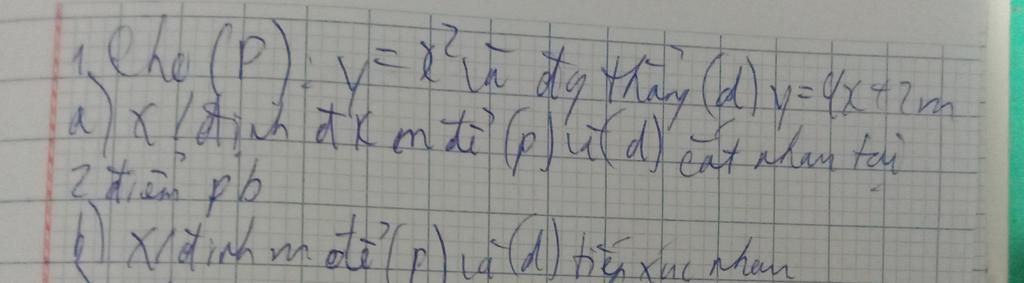 1, Cho (P): y = x² và đg thẳng (d) y = 4x + 2m
a) x/định đk m để (p) và (d) cắt nhau tại
2 điểm pb
b) x/định m để (p) và (d) tiếp xúc nhau